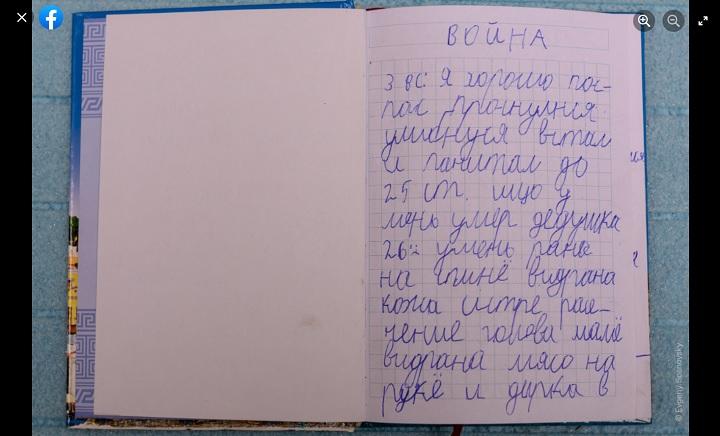 ВОЙНА
3 вс: я хорошо пос-
пал прочнулися
умилнуся встал
и почитал до
25 ст. ищо у
мень умер дедушка
26:: умень рана
на спинё видрана
кожа систре рас-
чение голова мамё
видрана мясо на
рукё и дирка в
© Evgeny Sosnovsky